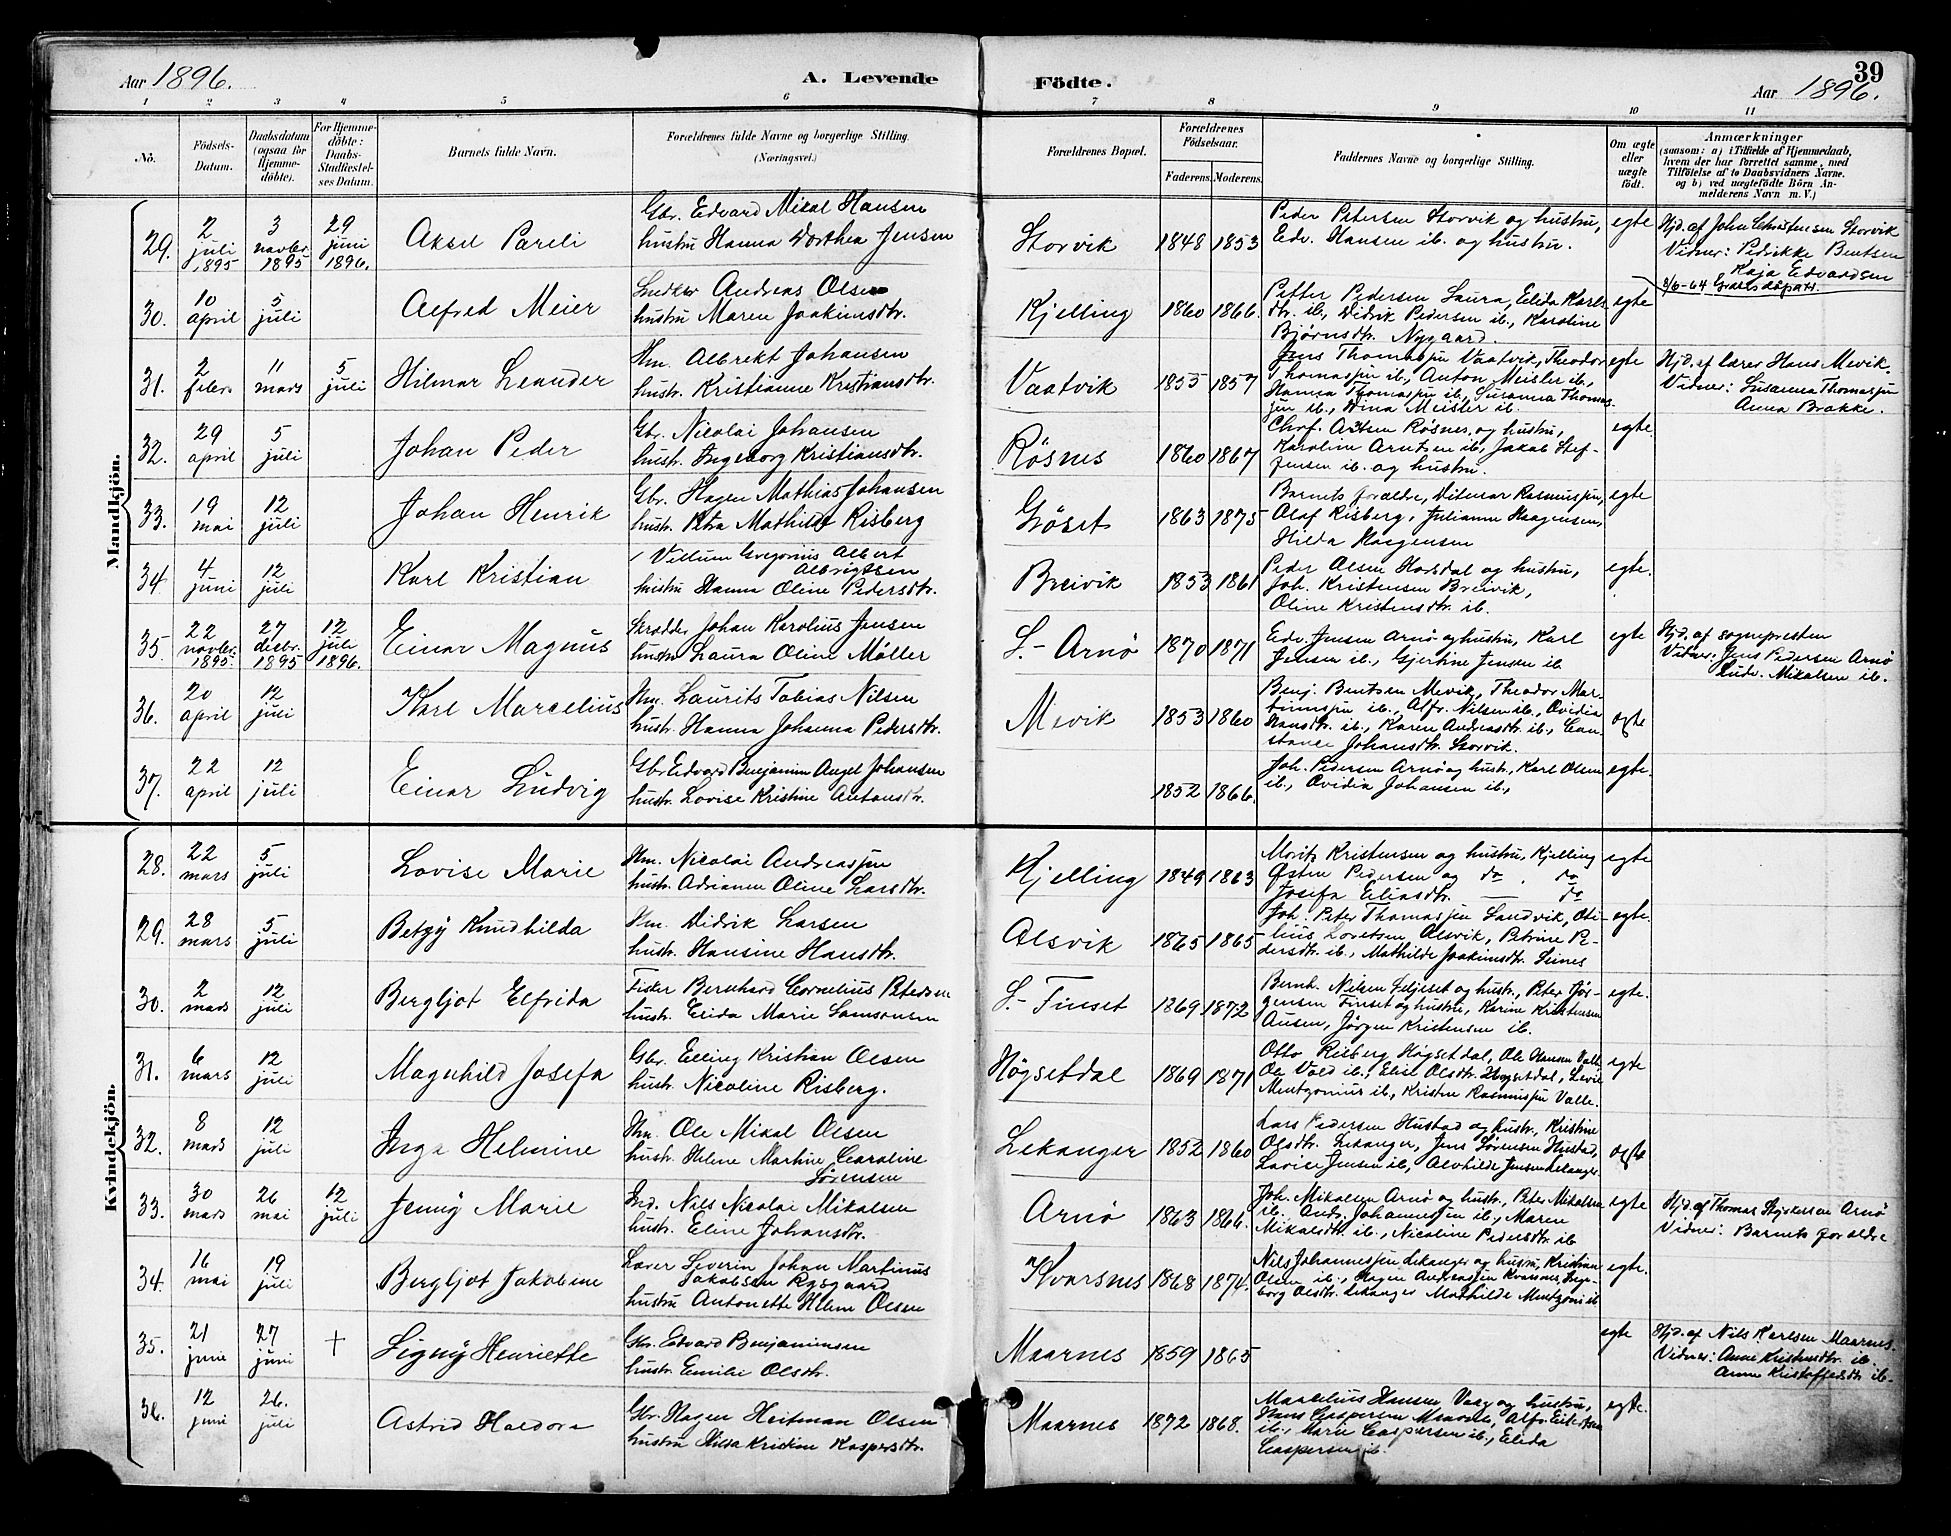 Aar 1896. A. Levende Födte. Aar 1896. 39
1 2 3 4 5 6 7 8 9 10 11
No. Födsels-Datum. Daabsdatum (ogsaa for Hjemme-döbte). For Hjemme-döbte: Daabs-Stadfæstel-ses Datum. Barnets fulde Navn. Forældrenes fulde Navne og borgerlige Stilling. (Næringsvei.) Forældrenes Bopæl. Forældrenes Födselsaar. Faderens. Moderens. Faddernes Navne og borgerlige Stilling. Om ægte eller uægte födt. Anmærkninger
(saasom: a) i Tilfælde af Hjemmedaab, hvem der har forrettet samme, med Tilföielse af to Daabsvidners Navne. og b) ved uægtefödte Börn An-melderens Navn m. V.)
Mandkjön.
29. 2 juli 1895 3 novbr. 1895 29 juni 1896. Aksel Pareli
Gbr. Edvard Mikal Hansen
hustru Hanna Dorthea Jensen
Storvik 1848 1853
Peder Petersen Storvik og hustru,
Edv. Hansen ib. og hustru.
egte
Hjd. af John Christensen Storvik
Vidner: Pedrikke Bentsen
Kaja Edvardsen
30. 10 april 5 juli Alfred Meier
Andreas Olsen
hustru Maren Joakimsdtr.
Kjelling 1860 1866.
Petter Pedersen, Laura, Elida Karls-
dtr. ib., Didrik Pedersen ib., Karoline
Bjørnsdtr. Nygaard.
egte
8/6-64
31. 2 febr. 11 mars 5 juli Hilmar Leander
Hm. Albrekt Johansen
hustr. Kristianne Kristiansdtr.
Vaatvik 1855 1857
Jens Thomasjen Vaatvik, Theodor
Thomasjen ib., Anton Meisler ib.,
Hanna Thomasjen ib., Susanna Thomas-
jen ib., Dina Meisler ib.
egte
Hjd. af lærer Hans Mevik.
Vidner: Susanna Thomasjen
Anna Brakke.
32. 29 april 5 juli Johan Peder
Gbr. Nicolai Johansen
hustr. Ingeborg Kristiansdtr.
Røsnes 1860 1867
Chrf. Røsnes, og hustru,
Karoline Arntsen ib., Jakob Stef-
fensen ib. og hustru.
egte.
33. 19 mai 12 juli Johan Henrik
Gbr. Hagen Mathias Johansen
hustr. Petra Mathilde Risberg
Gøset 1863 1875
Barnets forældre, Ditmar Rasmusjen,
Olaf Risberg, Julianne Haagensen,
Hilda Haagensen
egte
34. 4 juni 12 juli Karl Kristian
Villum Gregorius Albert
Albrigtsen
hustru Hanna Oline Pedersdtr.
Breivik 1853 1861
Peder Olsen Horsdal og hustru,
Joh. Kristensen Breivik,
Oline Kristensdtr. ib.
egte.
35. 22 novbr. 1895. 27 desbr. 1895 12 juli 1896. Einar Magnus
Skrædder Johan Karolius Jensen
hustru Laura Oline Møller
S.- Arnø 1870 1871
Edv. Jensen Arnø og hustru, Karl
Jensen ib., Gjertine Jensen ib
egte
Hjd. af sognepresten
Vidner: Jens Pedersen Arnø
Ludv. Mikalsen ib.
36. 20 april 12 juli Karl Marcelius
Hm. Laurits Tobias Nilsen
hustr. Hanna Johanna Pedersdtr.
Mevik 1853 1860
Benj. Bentsen Mevik, Theodor Mar-
tinusjen ib., Alfr. Nilsen ib., Ovidia
Hansdtr. ib., Karen Andreasdtr. ib., Con-
stance Johansdtr. Storvik.
egte
37. 22 april 12 juli Einar Ludvig
Gbr. Edvard Benjamin Angel Johansen
hustr. Lovise Kristine Antonsdtr.
1852 1866.
Joh. Pedersen Arnø og hustr., Karl Olsen
ib., Ovidia Johansen ib.,
egte.
Kvindekjön.
28. 22 mars 5 juli Lovise Marie
Hm. Nicolai Andreasjen
hustr. Adriane Oline Larsdtr.
Kjelling 1849 1863
Morits Kristensen og hustru, Kjelling
Østen Pedersen og do. do
Josefa Eliasdtr. — do
egte
29. 28 mars 5 juli Betzy Knudhilda
Hm. Didrik Larsen
hustr. Hansine Hansdtr.
Alsvik 1865 1865
Joh. Peter Thomasjen Sandvik, Oti-
lius Lovetsen Alsvik, Petrine Pe-
dersdtr. ib., Mathilde Joakimsdtr. Seines
egte.
30. 2 mars 12 juli Bergljot Elfrida
Fisker Bernhard Cornelius Petersen
hustr. Elida Marie Samsonsen
S.- Finset 1869 1872
Bernh. Nilsen og hustr., Peter Jør-
gensen Finset og hustru, Karine Kristensen
Ausen, Jörgen Kristensen ib.
egte.
31. 6 mars 12 juli Magnhild Josefa
Gbr. Elling Kristian Olsen
hustr. Nicoline Risberg.
Høgsetdal 1869 1871
Otto Risberg Høgsetdal, Ole Hansen Valle
Ole Vold ib., Elise Olsdtr. Høgsetdal,
Mentzonius ib., Kristine Rasmusjen Valle.
egte
32. 8 mars 12 juli Inga Helmine
Hm. Ole Mikal Olsen
hustr. Helene Martine Caroline
Sörensen
Lekanger 1852 1860
Lars Pedersen Hustad og hustr., Kristine
Olsdtr. Lekanger, Jens Sörensen Hustad,
Lovise Jensen ib., Alvhilde Jensen Lekanger
egte
33. 30 mars 26 mai 12 juli Jenny Marie
Ind. Nils Nicolai Mikalsen
hustr. Eline Johansdtr.
Arnø 1863 1866.
Joh. Mikalsen Arnø og hustr., Peter Mikalsen
ib., Andr. Johannesjen ib., Maren
Mikalsdtr. ib., Nicoline Pedersdtr. ib
egte
Hjd. af Thomas Arnø
Vidner: Barnets forældre
34. 16 mai 19 juli Bergljot Jakobine
Lærer Severin Johan Martinus
Jakobsen Rygaard
hustru Antonette Helene Olsen
Kvarsnes 1868 1874.
Nils Johannesjen Lekanger og hustru, Kristian
Olsen ib., Hagen Andreasjen Kvarsnes, Inge-
borg Olsdtr. Lekanger Mathilde Mentzoni ib
egte.
35. 21 june 27 juni † Signy Henriette
Gbr. Edvard Benjaminsen
hustr. Emilie Olsdtr.
Maarnes 1859 1865
egte
Hjd. af Nils Karlsen Maarnes.
Vidner: Anne Kristensdtr. ib
Anne Kristoffersdtr ib.
36. 12 juni 26. juli Astrid Haldora
Gbr. Hagen Heitman Olsen
hustru Hilda Kristine Kaspersdtr.
Maarnes 1872 1868.
Marcelius Hansen Vaag og hustru,
Hans Caspersen Maarnes, Alfr. Eilertsen
ib., Marie Caspersen ib., Elida
Caspersen ib.
egte.